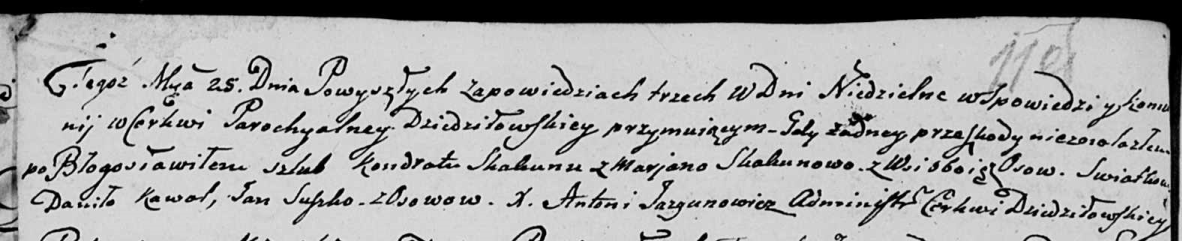 110
Tegoż Mca 25. Dnia Powyszłych zapowiedziach trzech w Dni Niedzielne w Spowiedzi y Komu
nij w Cerkwi Parochyalney Dziedziłowskiey przymuiącym - Gdy żadney przeszkody nieznalazłem
po Błogosławiłem szlub Kondratu Skakunu z Marjano Skakunowo z Wsi oboie Osow. Swiatkow
Daniło Kawal, Jan Suszko z Osowow. X. Antoni Jazgunowicz Administr Cerkwi Dziedziłowskiey